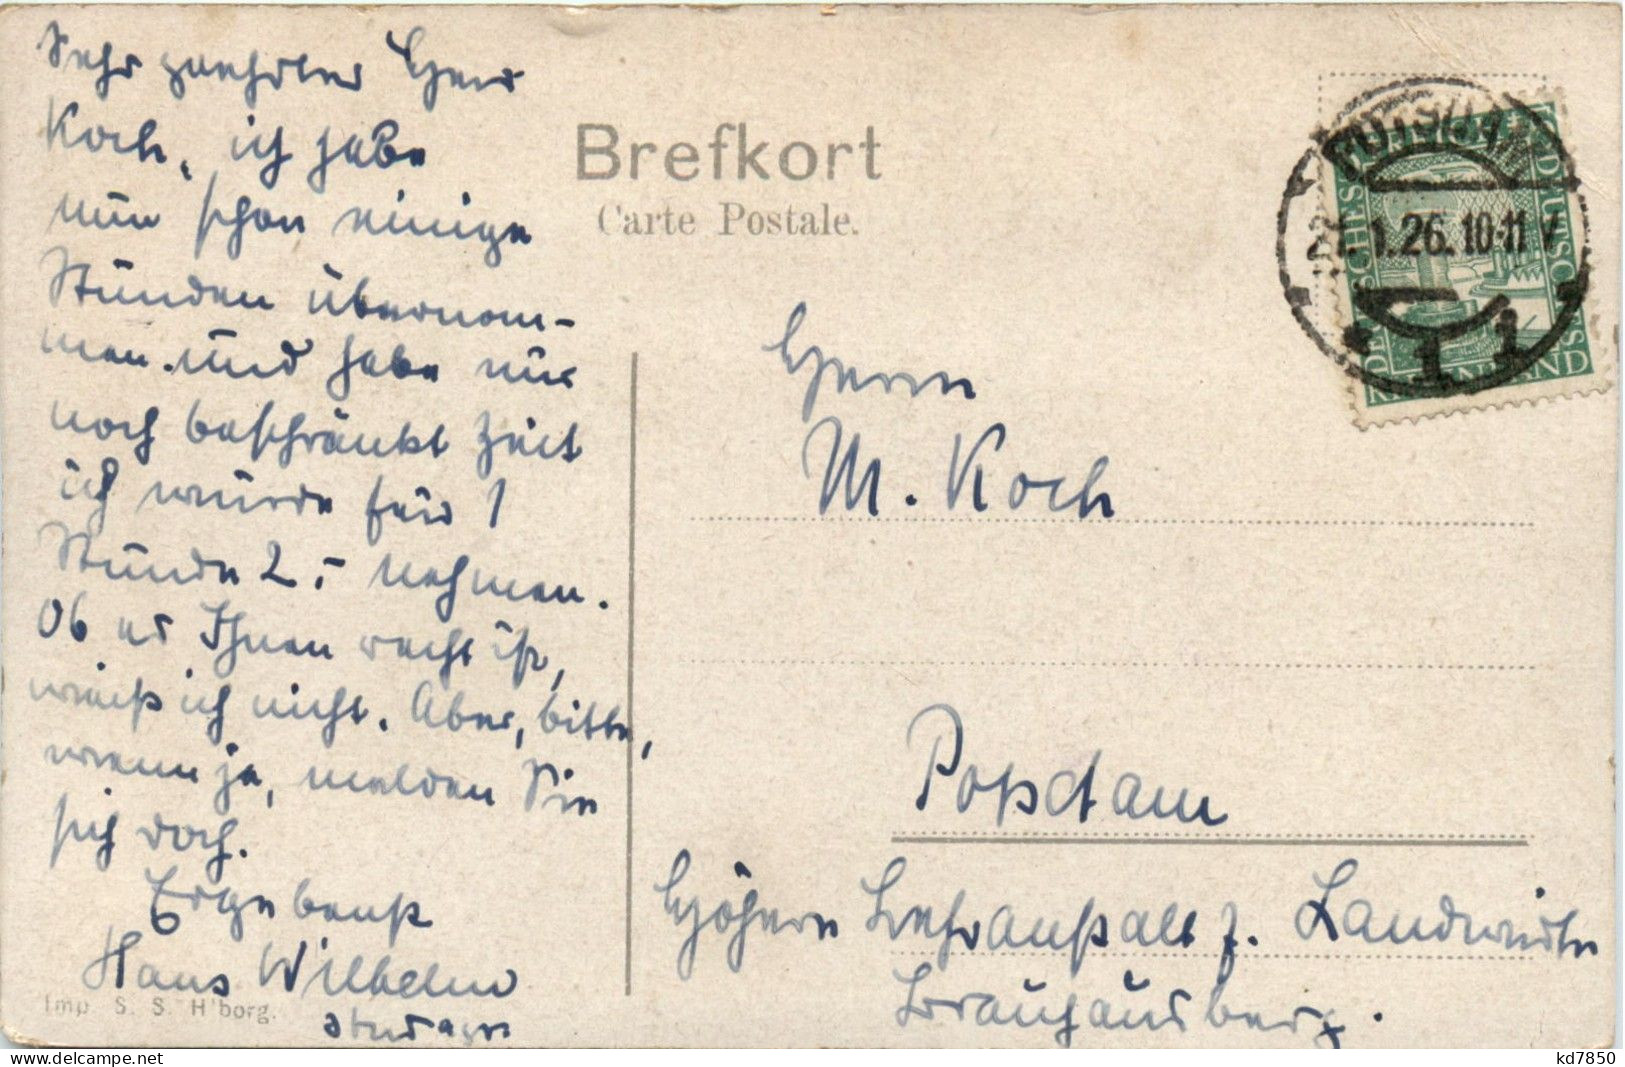 Sehr geehrter Herr
Koch, ich habe
nun schon einige
Stunden übernom-
men und habe nur
noch beschränkt Zeit
ich würde für 1
Stunde 2.- nehmen.
Ob es Ihnen recht ist,
weiß ich nicht. Aber, bitte,
wenn ja, melden Sie
sich doch.
Ergebenst
Hans Wilhelm
stud agr.
Imp. S. S. H'borg.
Brefkort
Carte Postale.
POTSDAM
21.1.26.10-11 V
1
Herrn
M. Koch
Potsdam
Höhere Lehranstalt f. Landwirte
Brauhausberg.
kd7850